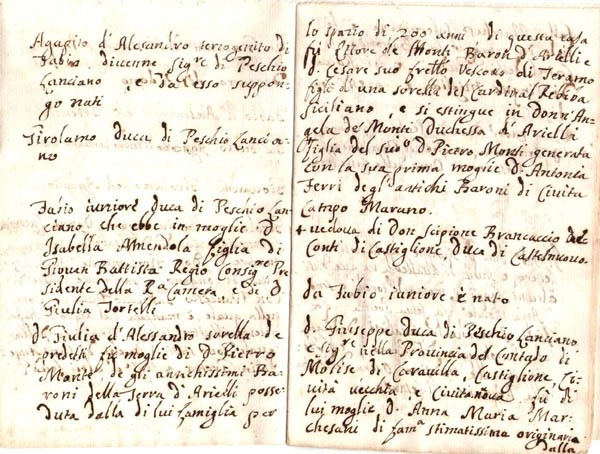 Agapito d'Alesandro terzogenito di
Fabio, divenne Sig.re di Peschio
Lanciano, e da esso suppon-
gō nati
Girolamo Duca di Peschio Lancia-
no
Fabio iuniore Duca di Peschio Lan-
ciano che ebbe in moglie D.
Isabella Amendola figlia di
Giovan Battista Regio Consig.re Pre
sidente della R.a Camera e di D.
Giulia Tortelli
D.a Giulia d'Alessandro sorella de
predetti fù moglie di D. Pietro
Monte de gli antichissimi Ba-
roni della Terra d'Arielli posse-
duta dalla di lui famiglia per
lo spazio di 200 anni di questa casa
fù Ettore de Monti Baron d'Arielli e
D. Cesare suo frello Vescovo di Teramo
figli di una sorella del Cardinal Rebiba
siciliano, e si estingue in Donn'An-
gela de Monti Duchessa d'Arielli
figlia del sud.o D. Pietro Monti generata
con la sua prima moglie D. Antonia
Ferri degl'antichi Baroni di Civita
Campo Marano.
+ vedova di Don Scipione Brancaccio de
Conti di Castiglione, Duca di Castelnuovo.
da Fabio iuniore è nato
D. Giuseppe Duca di Peschio Lanciano
e Sig.re nella Provincia del Contado di
Molise di Carovilla, Castiglione, Ci-
vità vecchia, e Civitanova fù di
lui moglie D. Anna Maria Mar-
chesani di fam.a stimatissima originaria
dalla